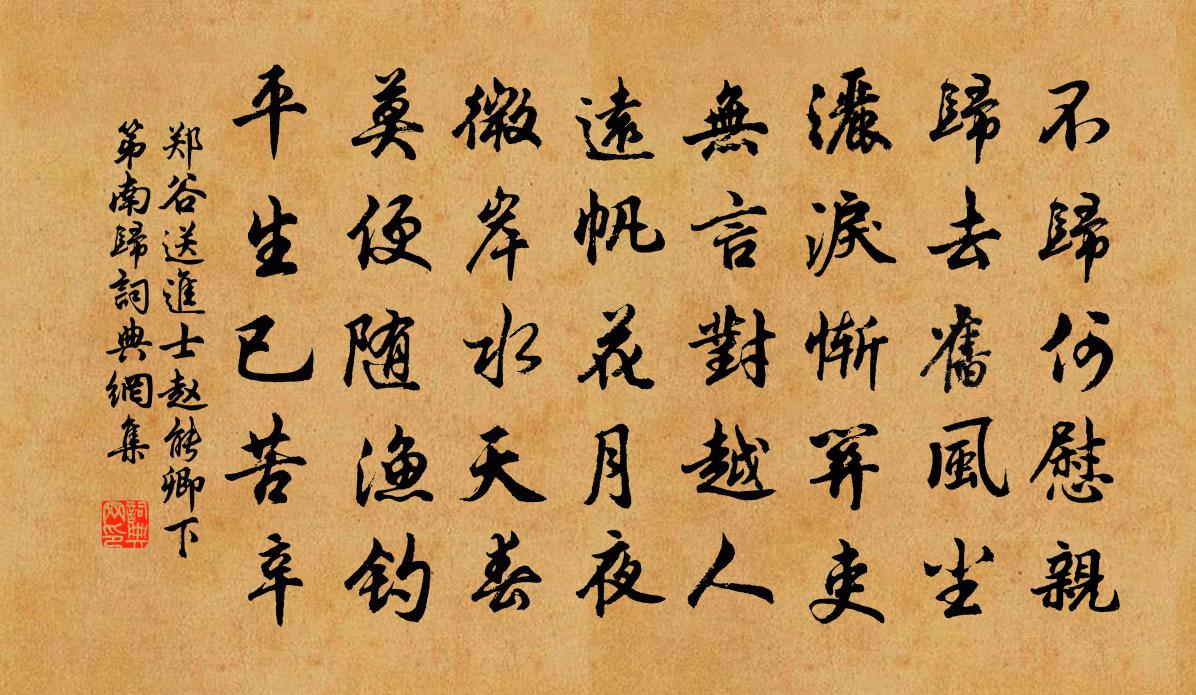 不歸何慰親
歸去舊風尘
灑淚慚關吏
無言對越人
遠帆花月夜
微岸水天春
莫便随漁釣
平生已苦辛
郑谷送進士赵能卿下
第南歸詞典網集
詞典
网印